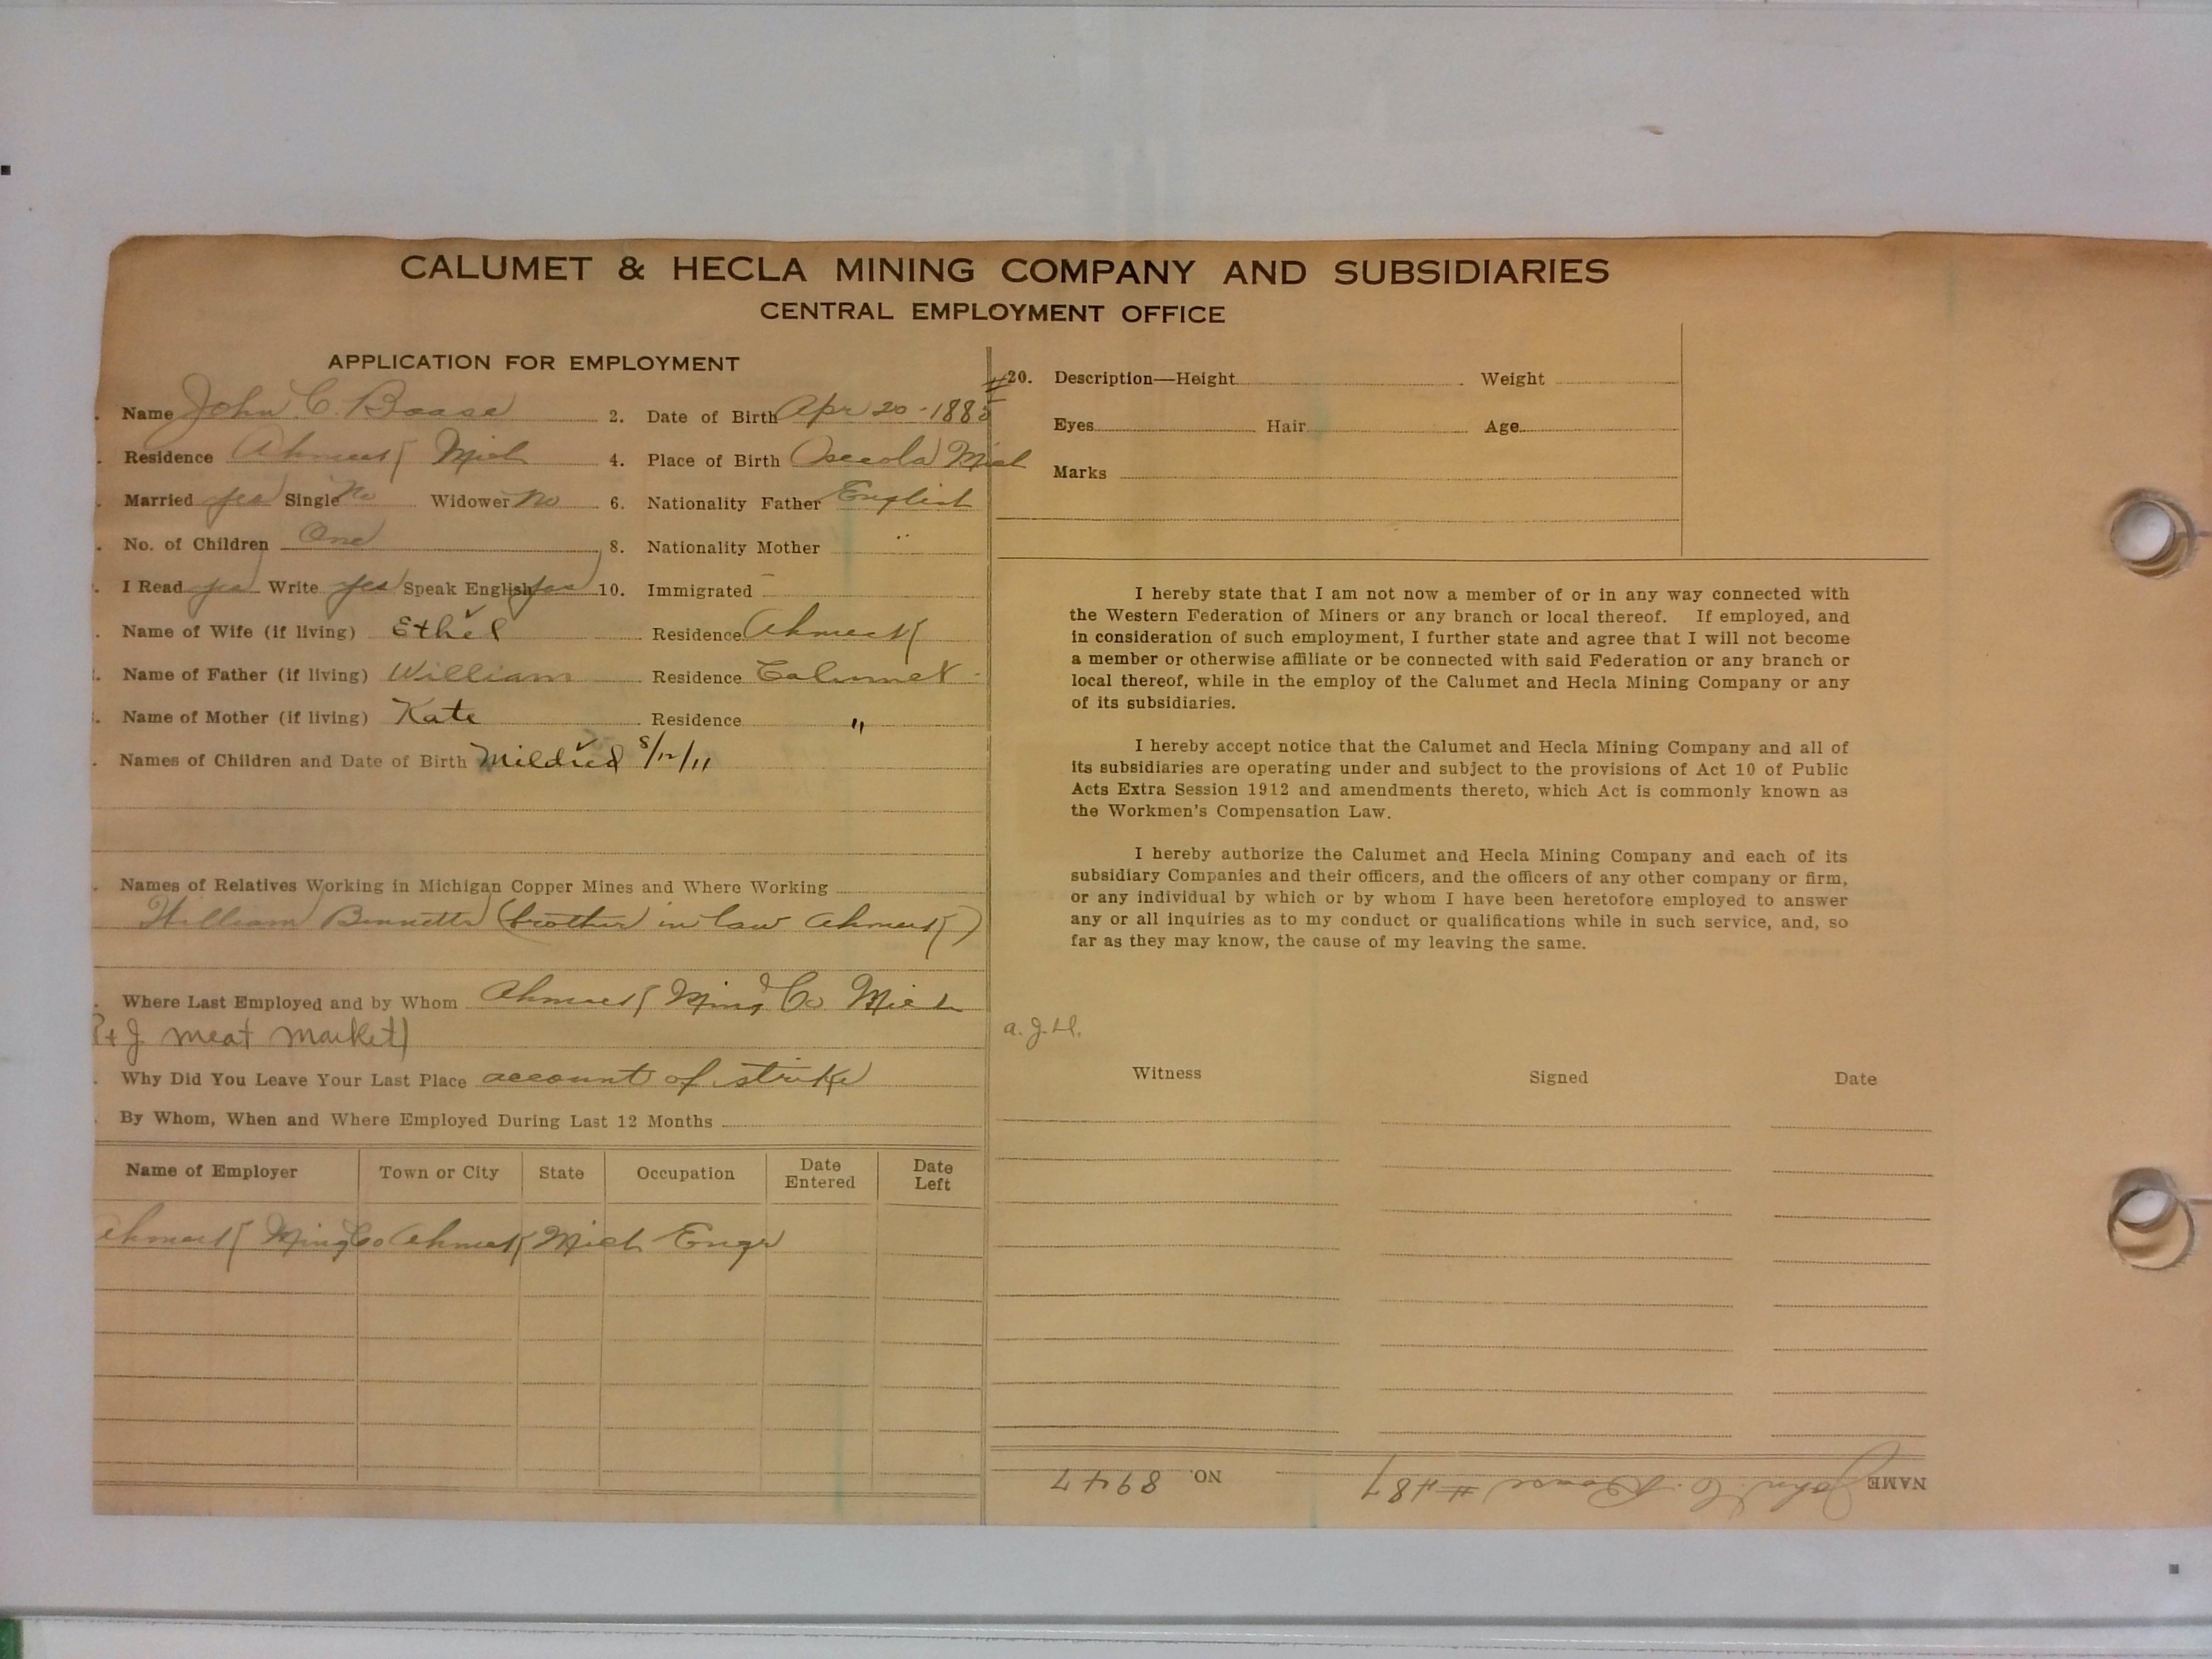 CALUMET & HECLA MINING COMPANY AND SUBSIDIARIES
CENTRAL EMPLOYMENT OFFICE
APPLICATION FOR EMPLOYMENT
Name John C. Baase 2. Date of Birth Apr 20-1885
Residence Ahmeek Mich 4. Place of Birth Osceola Mich
Married yes Single No Widower No 6. Nationality Father English
No. of Children One 8. Nationality Mother "
I Read yes Write yes Speak English yes 10. Immigrated -
Name of Wife (if living) Ethel Residence Ahmeek
Name of Father (if living) William Residence Calumet
Name of Mother (if living) Kate Residence "
Names of Children and Date of Birth Mildred 8/12/11
Names of Relatives Working in Michigan Copper Mines and Where Working
William Bennetts (brother in law Ahmeek)
Where Last Employed and by Whom Ahmeek Ming Co Mich
+ J meat market)
Why Did You Leave Your Last Place account of strike
By Whom, When and Where Employed During Last 12 Months
Name of Employer Town or City State Occupation Date Entered Date Left
Ahmeek Ming Co Ahmeek Mich Engr
20. Description—Height Weight
Eyes Hair Age
Marks
I hereby state that I am not now a member of or in any way connected with
the Western Federation of Miners or any branch or local thereof. If employed, and
in consideration of such employment, I further state and agree that I will not become
a member or otherwise affiliate or be connected with said Federation or any branch or
local thereof, while in the employ of the Calumet and Hecla Mining Company or any
of its subsidiaries.
I hereby accept notice that the Calumet and Hecla Mining Company and all of
its subsidiaries are operating under and subject to the provisions of Act 10 of Public
Acts Extra Session 1912 and amendments thereto, which Act is commonly known as
the Workmen's Compensation Law.
I hereby authorize the Calumet and Hecla Mining Company and each of its
subsidiary Companies and their officers, and the officers of any other company or firm,
or any individual by which or by whom I have been heretofore employed to answer
any or all inquiries as to my conduct or qualifications while in such service, and, so
far as they may know, the cause of my leaving the same.
a. J. H.
Witness Signed Date
NAME John C. Baase #487 NO. 8947